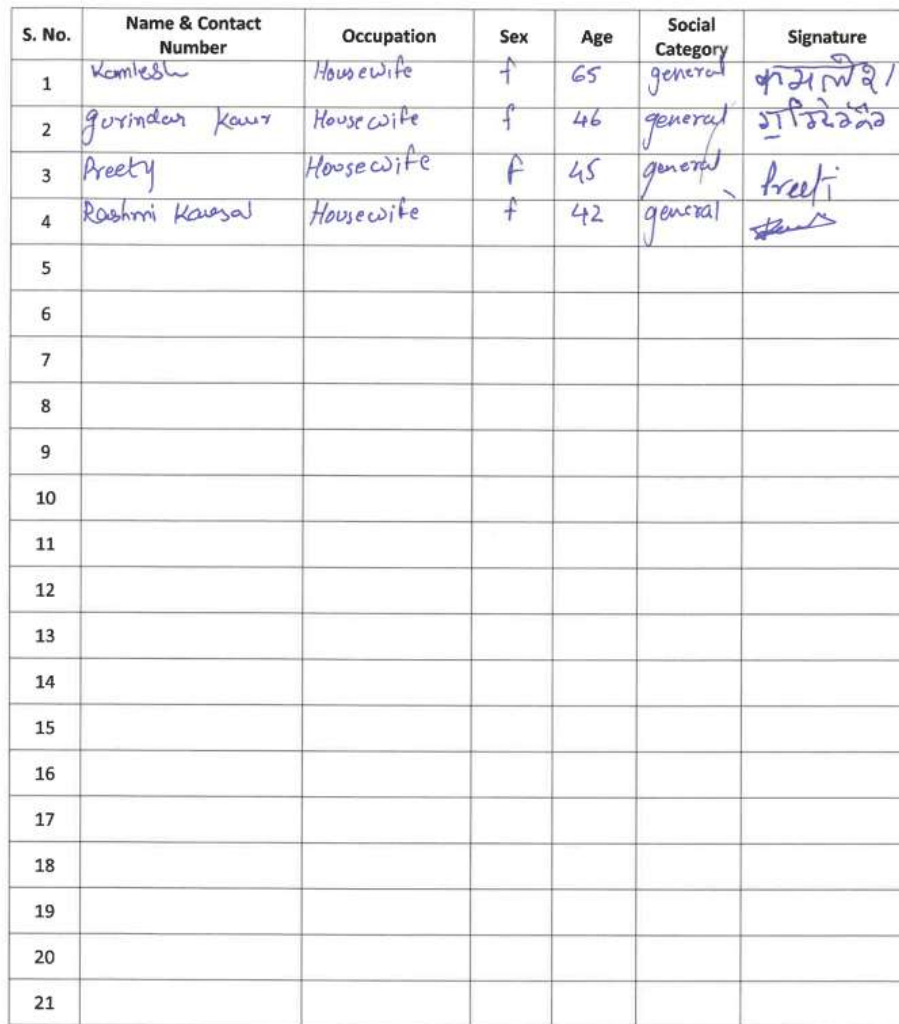 S. No. Name & Contact Number Occupation Sex Age Social Category Signature
1 Kamlesh Housewife f 65 general कमलेश
2 gurinder Kaur Housewife f 46 general
3 Preety Housewife f 45 general Preeti
4 Rashmi Kausal Housewife f 42 general
5
6
7
8
9
10
11
12
13
14
15
16
17
18
19
20
21